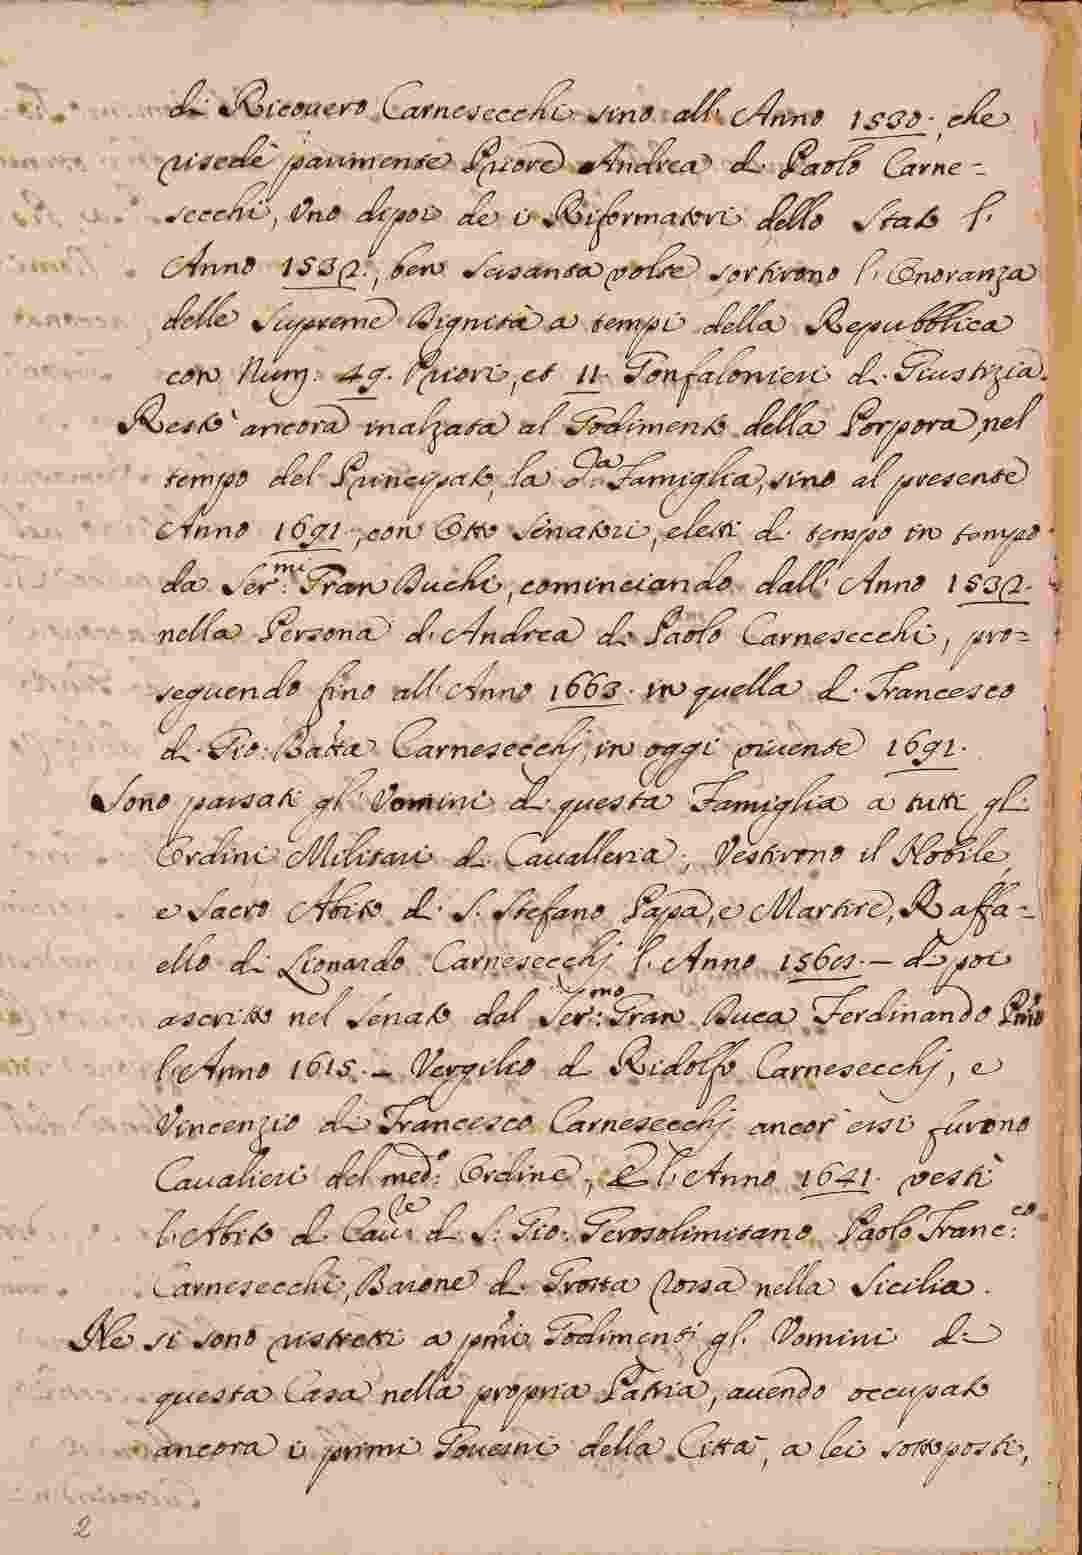 di Ricouero Carnesecchi sino all' Anno 1530., che
risedè parimente Priore Andrea di Paolo Carne=
secchi, Uno dipoi de i Riformatori dello Stato l'
Anno 1532., ben sessanta volte sortirono l' Onoranza
delle Supreme Dignità a tempi della Repubblica
con Num: 49. Priori, et 11. Gonfalonieri di Giustizia.
Restò ancora inalzata al Godimento della Porpora, nel
tempo del Principato, la d.a Famiglia, sino al presente
Anno 1691., con Otto Senatori, eletti di tempo in tempo
da Ser:mi Gran Duchi, cominciando dall' Anno 1532.
nella Persona di Andrea di Paolo Carnesecchi, pro=
seguendo fino all' Anno 1663. in quella di Francesco
di Gio: Batta Carnesecchj, in oggi vivente 1691.
Sono passati gl' Uomini di questa Famiglia a tutti gl'
Ordini Militari di Cavalleria; Vestirono il Nobile,
e Sacro Abito di S. Stefano Papa, e Martire, Raffa=
ello di Lionardo Carnesecchj l' Anno – di poi
ascritto nel Senato dal Ser:mo Gran Duca Ferdinando Pmo
l' Anno 1615. – Vergilio di Ridolfo Carnesecchj, e
Vincenzio di Francesco Carnesecchj ancor' essi furono
Cavalieri del med:o Ordine, E l' Anno 1641. vestì
l' Abito di Cav:re di S: Gio: Gerosolimitano Paolo Franc:co
Carnesecchi, Barone di Grotta Rossa nella Sicilia.
Ne si sono ristretti a pmi Godimenti gl' Uomini di
questa Casa nella propria Patria, avendo occupato
ancora i primi Governi della Città, a lei sottoposti,
2